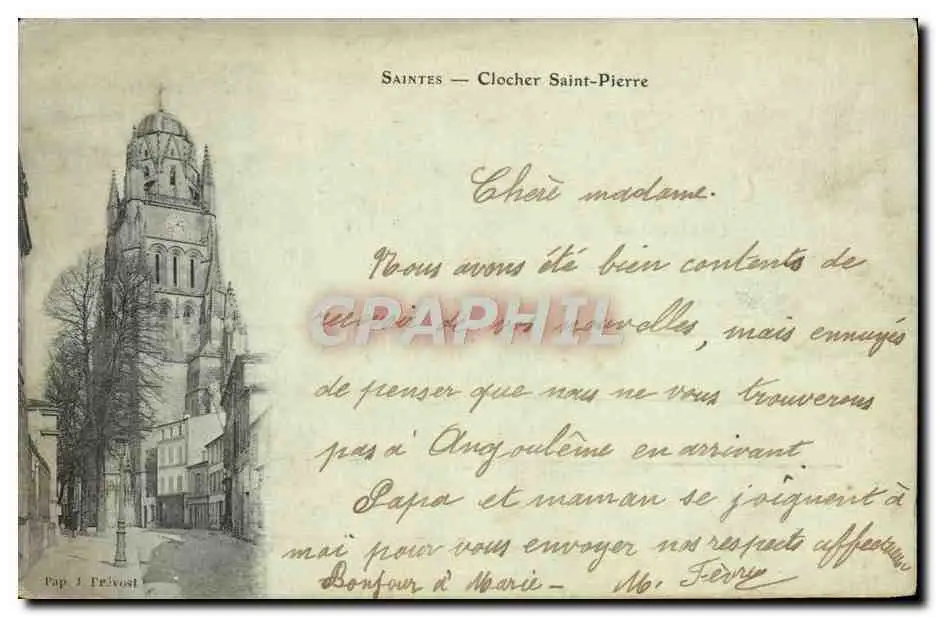 SAINTES — Clocher Saint-Pierre
Chère madame.
Nous avons été bien contents de
de vos nouvelles, mais ennuyés
de penser que nous ne vous trouverons
pas à Angoulême en arrivant
Papa et maman se joignent à
moi pour vous envoyer nos respects affectueux
Bonjour à Marie - M. Fèvre
CPAPHIL
Pap. J. Prévost